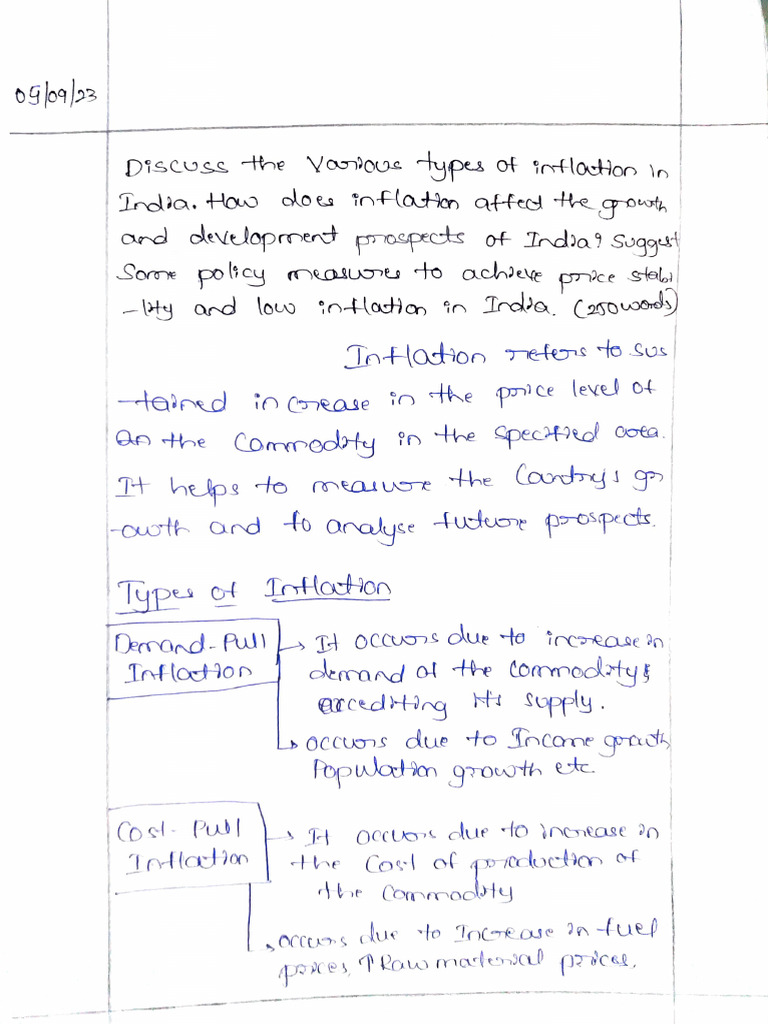 05/09/23
Discuss the various types of inflation in
India. How does inflation affect the growth
and development prospects of India? Suggest
Some policy measures to achieve price stabi
-lity and low inflation in India. (250 words)
Inflation refers to sus
-tained increase in the price level of
an the Commodity in the specified area.
It helps to measure the Country's gr
-owth and to analyse future prospects.
Types of Inflation
Demand-Pull
Inflation
→ It occurs due to increase in
demand of the commodity &
exceediting its supply.
↳ occurs due to Income growth
Population growth etc.
Cost-Pull
Inflation
→ It occurs due to increase in
the cost of production of
the commodity
↳ occurs due to Increase in fuel
prices, ↑ Raw material prices.